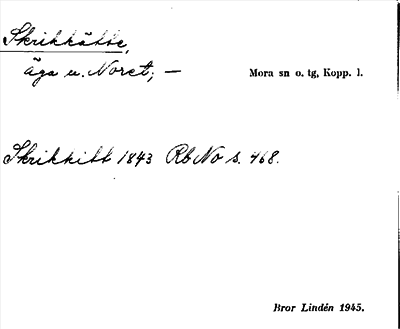 Skrikkätte,
äga u. Noret; —
Mora sn o. tg, Kopp. l.
Skrikkitt 1843 Rb No s. 468.
Bror Lindén 1945.